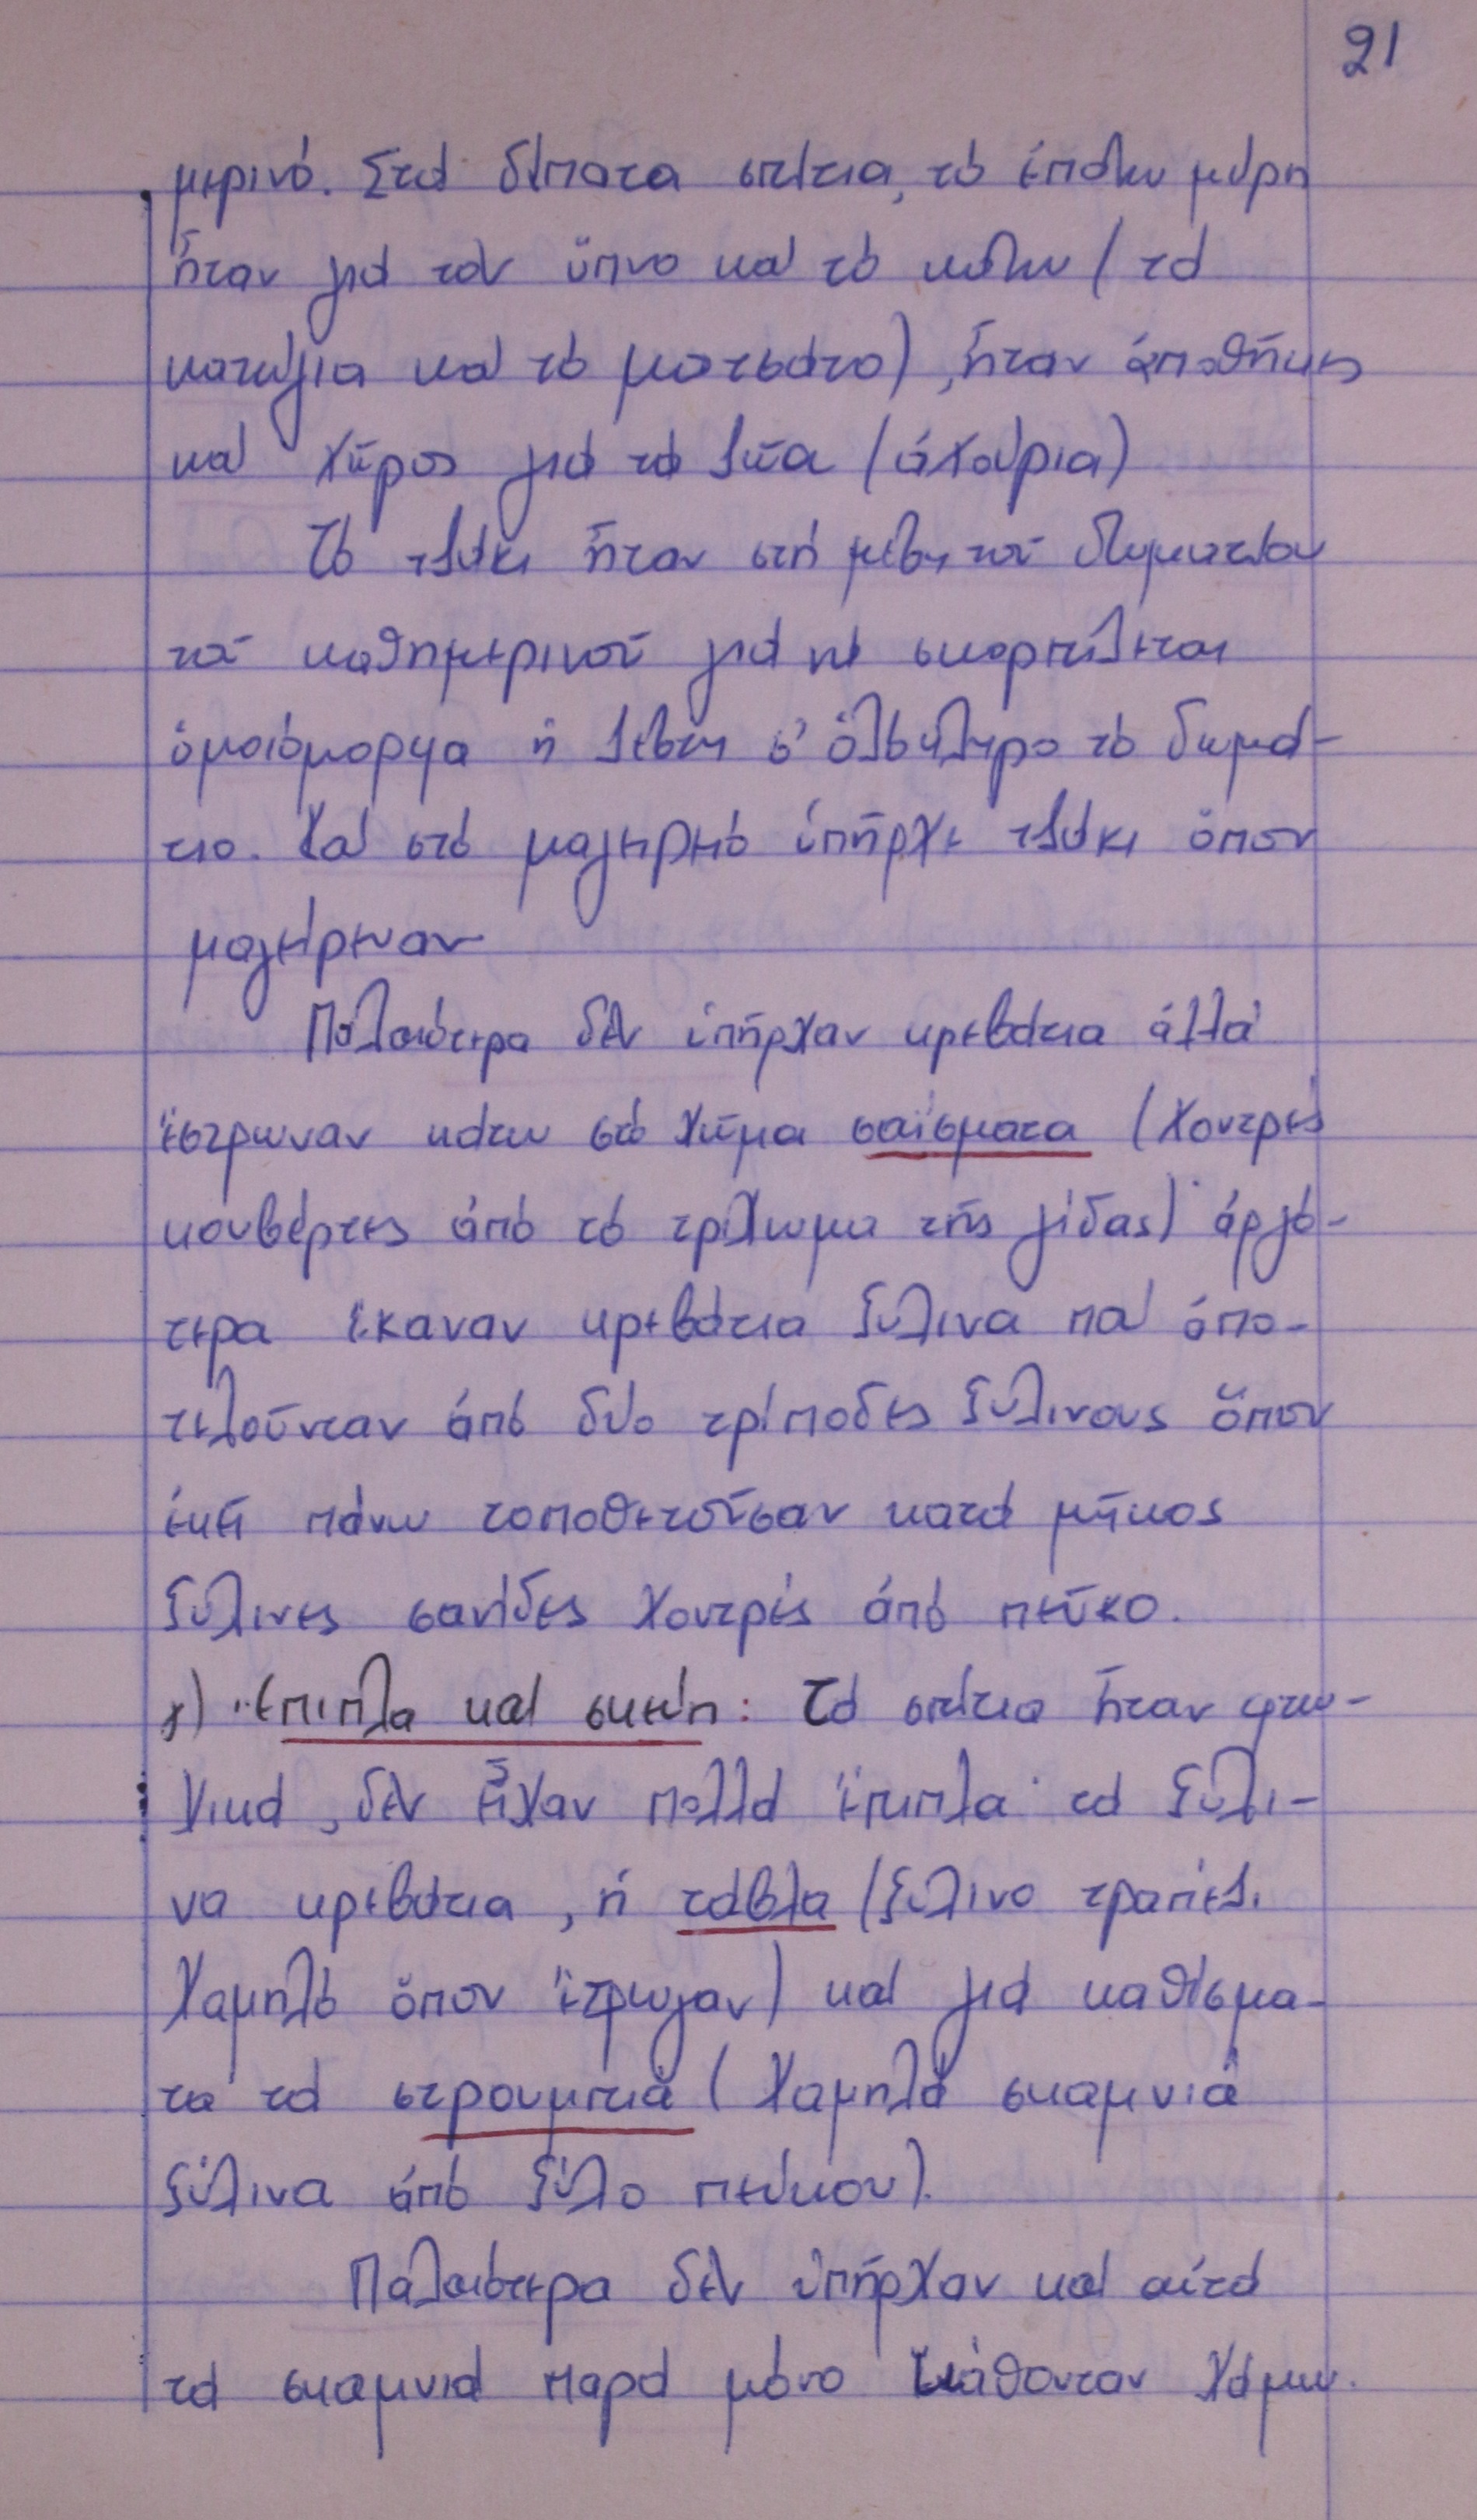 21
μερινό. Στά δίπατα σπίτια, τό ἐπάνω μέρη
ἦταν γιά τόν ὕπνο καί τό κάτω (τά
κατώγια καί τό ματσάτο), ἦταν ἀποθήκες
καί χῶρος γιά τά ζῶα (ἀχούρια)
Τό τζάκι ἦταν στή μέση τοῦ δωματίου
τοῦ καθημερινοῦ γιά νά σκορπίζεται
ὁμοιόμορφα ἡ ζέστη σ' ὁλόκληρο τό δωμά-
τιο. Καί στό μαγειρειό ὑπῆρχε τζάκι ὅπου
μαγείρευαν
Παλαιότερα δέν ὑπῆρχαν κρεβάτια ἀλλά
ἔστρωναν κάτω στό χῶμα σαΐσματα (χοντρές
κουβέρτες ἀπό τό τρίχωμα τῆς γίδας)· ἀργό-
τερα ἔκαναν κρεβάτια ξύλινα πού ἀπο-
τελοῦνταν ἀπό δύο τρίποδες ξύλινους ὅπου
ἐκεῖ πάνω τοποθετοῦσαν κατά μῆκος
ξύλινες σανίδες χοντρές ἀπό πεῦκο.
γ) Ἔπιπλα καί σκεύη: Τά σπίτια ἦταν φτω-
χικά, δέν εἶχαν πολλά ἔπιπλα· τά ξύλι-
να κρεβάτια, ἡ τάβλα (ξύλινο τραπέζι
χαμηλό ὅπου ἔτρωγαν) καί γιά καθίσμα-
τα τά στρουμπιά (χαμηλά σκαμνιά
ξύλινα ἀπό ξύλο πεύκου).
Παλαιότερα δέν ὑπῆρχαν καί αὐτά
τά σκαμνιά παρά μόνο κάθονταν χάμω.